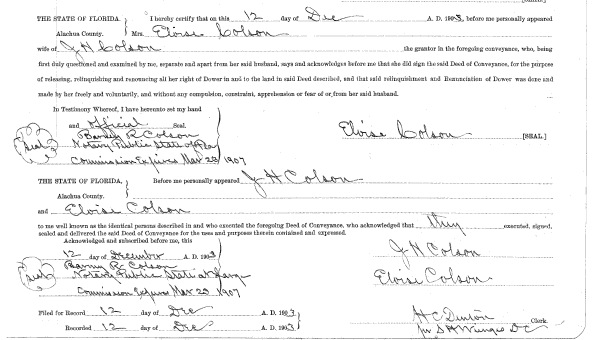 THE STATE OF FLORIDA, I hereby certify that on this 12 day of Dec A. D. 1903, before me personally appeared
Alachua County. Mrs. Eloise Colson
wife of J H Colson the grantor in the foregoing conveyance, who, being
first duly questioned and examined by me, separate and apart from her said husband, says and acknowledges before me that she did sign the said Deed of Conveyance, for the purpose
of releasing, relinquishing and renouncing all her right of Dower in and to the land in said Deed described, and that said relinquishment and Renunciation of Dower was done and
made by her freely and voluntarily, and without any compulsion, constraint, apprehension or fear of or from her said husband.
In Testimony Whereof, I have hereunto set my hand
and official Seal.
Seal Barney R Colson Eloise Colson [SEAL.]
Notary Public State of Fla
Commission Expires Mar 23 1907
THE STATE OF FLORIDA, Before me personally appeared J H Colson
Alachua County.
and Eloise Colson
to me well known as the identical persons described in and who executed the foregoing Deed of Conveyance, who acknowledged that they executed, signed,
sealed and delivered the said Deed of Conveyance for the uses and purposes therein contained and expressed.
Acknowledged and subscribed before me, this
12 day of December A. D. 1903 J H Colson
Seal Barney R Colson Eloise Colson
Notary Public State at Large
Commission Expires Mar 23 1907
Filed for Record 12 day of Dec A. D. 1903. H C Denton Clerk.
Recorded 12 day of Dec A. D. 1903 D C